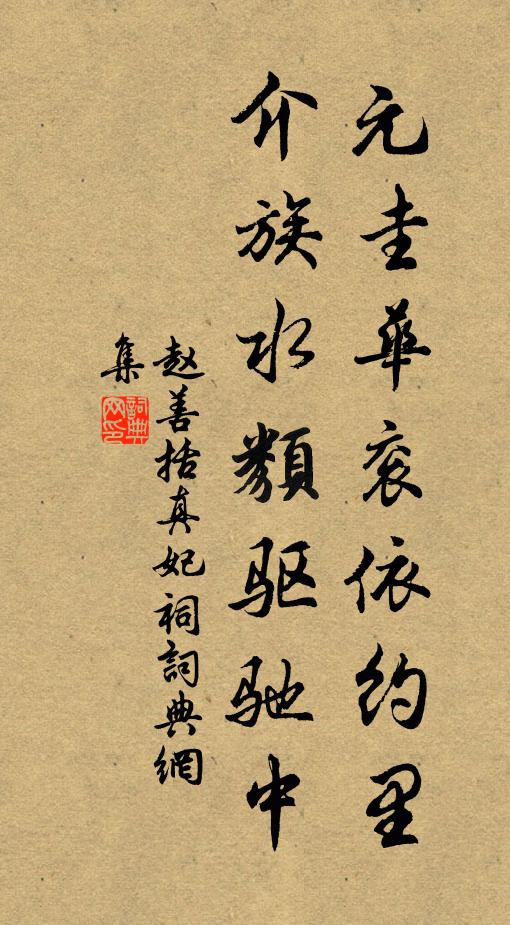 元圭華衮依约里
介族水類驱驰中
赵善括真妃祠詞典網
集
詞典网印